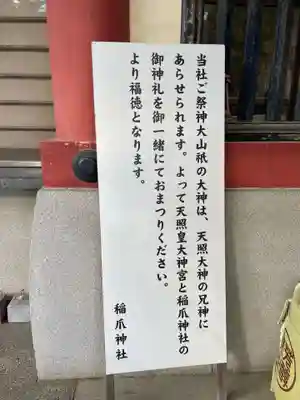 当社ご祭神大山祇の大神は、天照大神の兄神に
あらせられます。よって天照皇大神宮と稲爪神社の
御神礼を御一緒にておまつりください。
より福徳となります。
稲爪神社